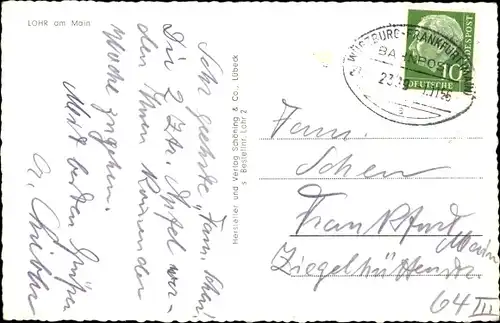 LOHR am Main
Sehr geehrte Fam. Schen!
Die 2 Ztr. Äpfel wer-
den Ihnen Ende der
Woche zugehen.
Mit besten Grüßen
Hersteller und Verlag Schöning & Co., Lübeck
s Bestellnr. Lohr 2
WÜRZBURG-FRANKFURT (MAIN)
BAHNPOST
DEUTSCHE BUNDESPOST
10
Fam.
Schen
Frankfurt
Main
Ziegelhüttenstr.
64 III